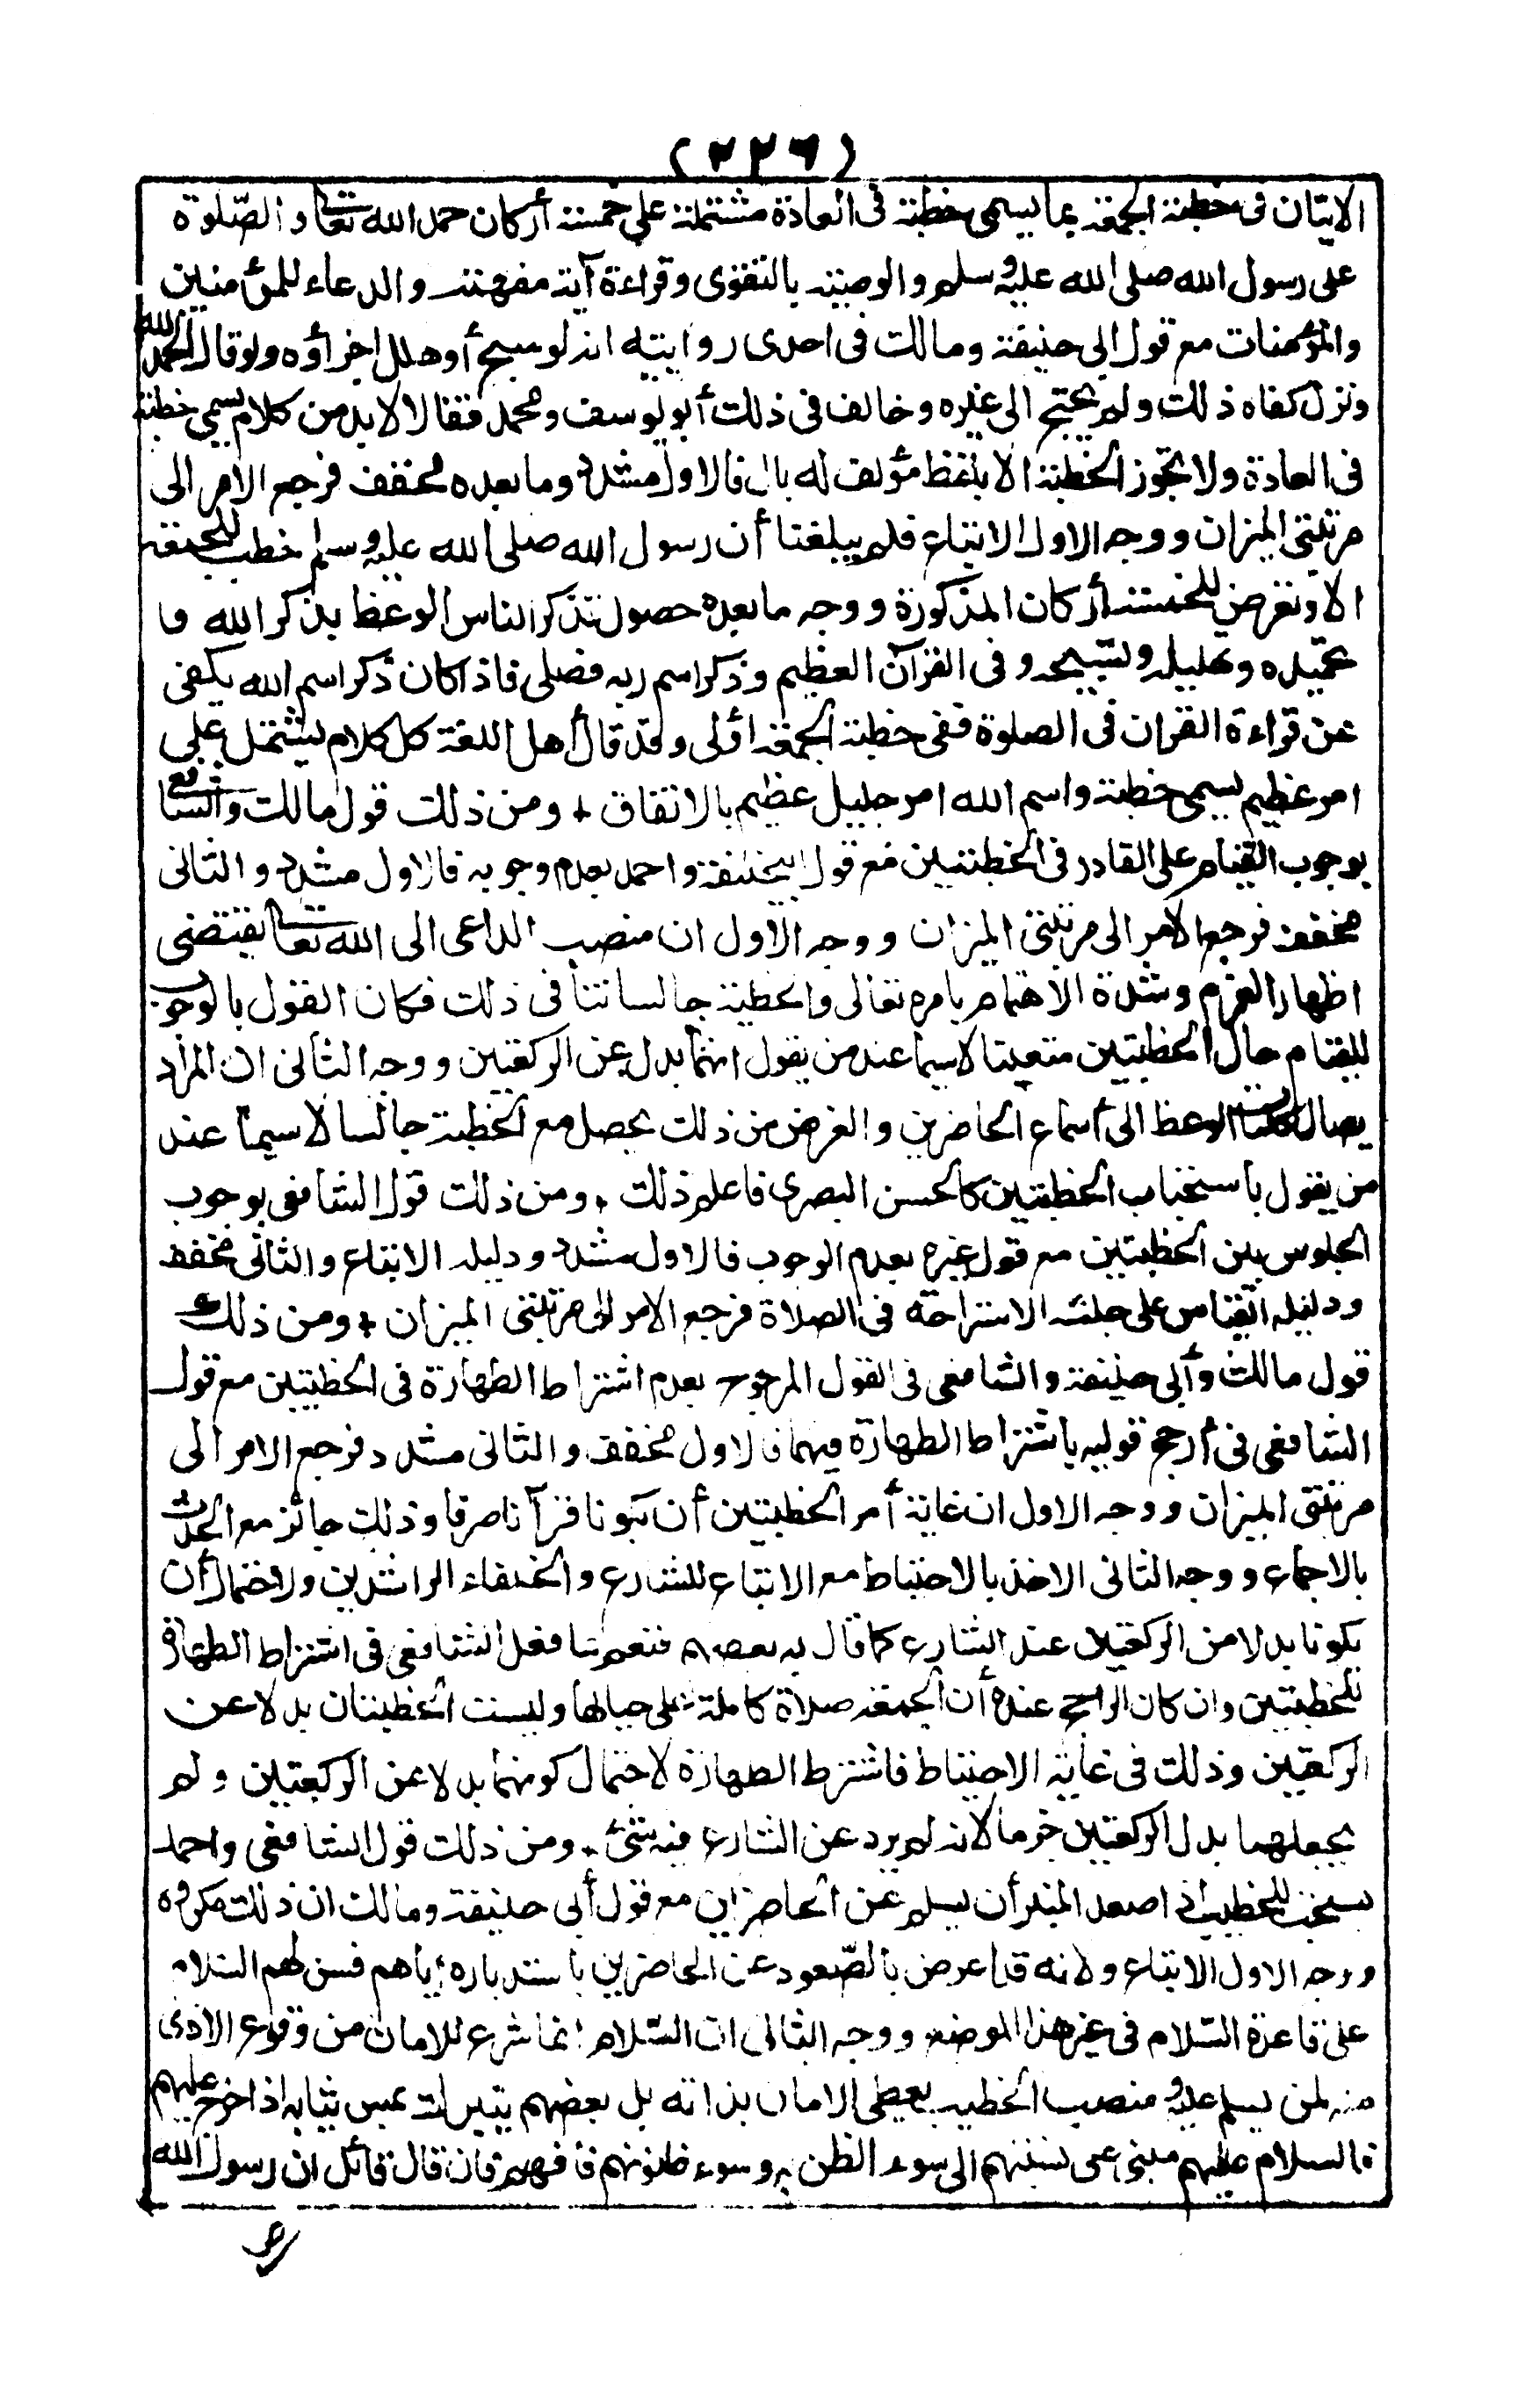 (٢٢٦)
الاتيان فى خطبة الجمعة بما يسمى خطبة فى العادة مشتملة على خمسة أركان حمد الله تعا والصّلوة
على رسول الله صلى الله عليه وسلم والوصية بالتقوى وقراءة آية مفهمة والدعاء للمؤمنين
والمؤمنات مع قول ابى حنيفة ومالك فى احدى روايتيه انه لو سبح أو هلل اجزأه ولو قال الحمد لله
ونزل كفاه ذلك ولم يحتج الى غيره وخالف فى ذلك أبو يوسف ومحمد فقالا لا بد من كلام يسمى خطبة
فى العادة ولا تجوز الخطبة الا بلفظ مؤلف له بال فالاول مشدد وما بعده مخفف فرجع الامر الى
مرتبتى الميزان ووجه الاول الاتباع فلم يبلغنا أن رسول الله صلى الله عليه وسلم خطب للجمعة
الا وتعرض للخمسة أركان المذكورة ووجه ما بعده حصول تذكر الناس الوعظ بذكر الله و
تحميده وتهليله وتسبيحه وفى القرآن العظيم وذكر اسم ربه فصلى فاذا كان ذكر اسم الله يكفى
عن قراءة القران فى الصلوة ففى خطبة الجمعة اولى وقد قال أهل اللغة كل كلام يشتمل على
امر عظيم يسمى خطبة واسم الله امر جليل عظيم بالاتفاق + ومن ذلك قول مالك والشافع
بوجوب القيام على القادر فى الخطبتين مع قول ابيحنيفة واحمد بعدم وجوبه فالاول مشدد والثانى
مخفف فرجع الامر الى مرتبتى الميزان ووجه الاول ان منصب الداعى الى الله تعا يقتضى
اظهار العزم وشدة الاهتمام بامره تعالى والخطبة جالسا تنافى ذلك فكان القول بالوجوب
للقيام حال الخطبتين متعينا لاسيما عند من يقول انهما بدل عن الركعتين ووجه الثانى ان المراد
يصال الوعظ الى أسماع الحاضرين والغرض من ذلك يحصل مع الخطبة جالسا لاسيما عند
من يقول باستحباب الخطبتين كالحسن البصرى فاعلم ذلك ٠ ومن ذلك قول الشافعى بوجوب
الجلوس بين الخطبتين مع قول غيره بعدم الوجوب فالاول مشدد ودليله الاتباع والثانى مخفف
ودليله القياس على جلسة الاستراحة فى الصلاة فرجع الامر الى مرتبتى الميزان + ومن ذلك
قول مالك وأبى حنيفة والشافعى فى القول المرجوح بعدم اشتراط الطهارة فى الخطبتين مع قول
الشافعى فى أرجح قوليه باشتراط الطهارة فيهما فالاول مخفف والثانى مشدد فرجع الامر الى
مرتبتى الميزان ووجه الاول ان غاية أمر الخطبتين أن تكونا قرآنا صرفا وذلك جائز مع الحدث
بالاجماع ووجه الثانى الاخذ بالاحتياط مع الاتباع للشارع والخلفاء الراشدين ولاحتمال أن
يكونا بدلا من الركعتين عند الشارع كما قال به بعضهم فنعم ما فعل الشافعى فى اشتراط الطهارة
للخطبتين وان كان الراجح عنده أن الجمعة صلاة كاملة على حيالها وليست الخطبتان بدلا عن
الركعتين وذلك فى غاية الاحتياط فاشترط الطهارة لاحتمال كونهما بدلا عن الركعتين ولم
يجعلهما بدل الركعتين جزما لانه لم يرد عن الشارع فيه شئ ٠ ومن ذلك قول الشافعى واحمد
يستحب للخطيب اذا صعد المنبر أن يسلم عن الحاضرين مع قول أبى حنيفة ومالك ان ذلك مكروه
ووجه الاول الاتباع ولانه قد اعرض بالصّعود عن الحاضرين باستدباره اياهم فسن لهم السلام
على قاعدة السّلام فى غير هذا الموضع ووجه الثانى ان السّلام انما شرع للامان من وقوع الاذى
منه لمن يسلم عليه ومنصب الخطيب يعطى الامان بذاته بل بعضهم يتبرك بمس ثيابه اذا خرج عليهم
فالسلام عليهم مبنى على نسبتهم الى سوء الظن به وسوء ظنونهم فافهم فان قال قائل ان رسول الله